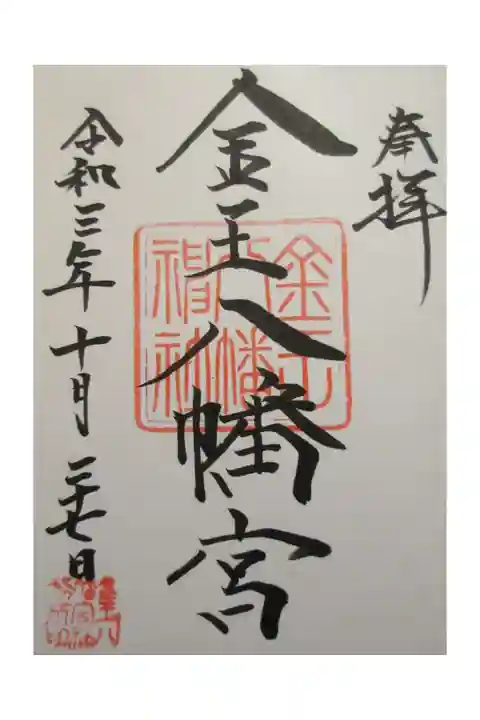 奉拝
金王八幡宮
金王八幡神社
令和三年十月二十七日